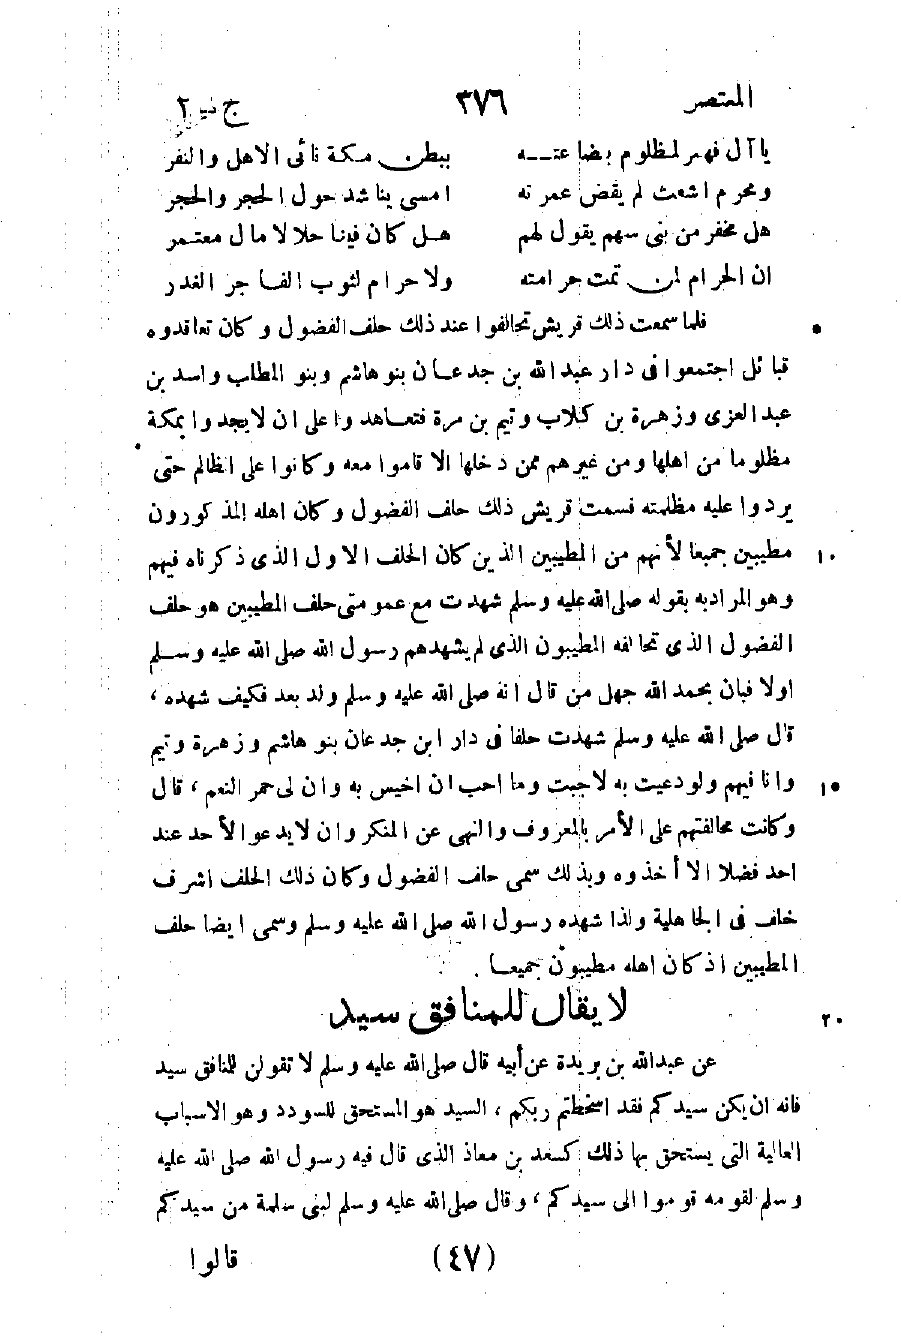 المعتصر ٣٧٦ ج - ٢
يا آل فهر لمظلوم بضاعتـــه ببطن مكة نائى الاهل والنفر
ومحرم اشعث لم يقض عمرته امسى يناشد حول الحجر والحجر
هل مخفر من بنى سهم يقول لهم هـل كان فينا حلالا مال معتمر
ان الحرام لمن تمت حرامته ولا حرام لثوب الفاجر الغدر
فلما سمعت ذلك قريش تحالفوا عند ذلك حلف الفضول وكان تعاقدوه ٥
قبائل اجتمعوا فى دار عبد الله بن جدعان بنو هاشم وبنو المطلب واسد بن
عبد العزى وزهرة بن كلاب وتيم بن مرة فتعاهدوا على ان لا يجدوا بمكة
مظلوما من اهلها ومن غيرهم ممن دخلها الا قاموا معه وكانوا على الظالم حتى
يردوا عليه مظلمته فسمت قريش ذلك حلف الفضول وكان اهله المذكورون
مطيبين جميعا لأنهم من المطيبين الذين كان الحلف الاول الذى ذكرناه فيهم ١٠
وهو المراد به بقوله صلى الله عليه وسلم شهدت مع عمومتى حلف المطيبين هو حلف
الفضول الذى تحالفه المطيبون الذى لم يشهدهم رسول الله صلى الله عليه وسـلم
اولا فبان بحمد الله جهل من قال انه صلى الله عليه وسلم ولد بعد فكيف شهده ،
قال صلى الله عليه وسلم شهدت حلفا فى دار ابن جدعان بنو هاشم وزهرة وتيم
وانا فيهم ولو دعيت به لاجبت وما احب ان اخيس به وان لى حمر النعم ، قال ١٥
وكانت محالفتهم على الأمر بالمعروف والنهى عن المنكر وان لا يدعوا لأحد عند
احد فضلا الا أخذوه وبذلك سمى حلف الفضول وكان ذلك الحلف اشرف
حلف فى الجاهلية ولذا شهده رسول الله صلى الله عليه وسلم وسمى ايضا حلف
المطيبين اذ كان اهله مطيبون جميعـا .
لا يقال للمنافق سيد ٢٠
عن عبدالله بن بريدة عن أبيه قال صلى الله عليه وسلم لا تقولن للمنافق سيد
فانه ان يكن سيدكم فقد اسخطتم ربكم ، السيد هو المستحق للسودد وهو الاسباب
العالية التى يستحق بها ذلك كسعد بن معاذ الذى قال فيه رسول الله صلى الله عليه
وسلم لقومه قوموا الى سيدكم ، وقال صلى الله عليه وسلم لبنى سلمة من سيدكم
(٤٧) قالوا